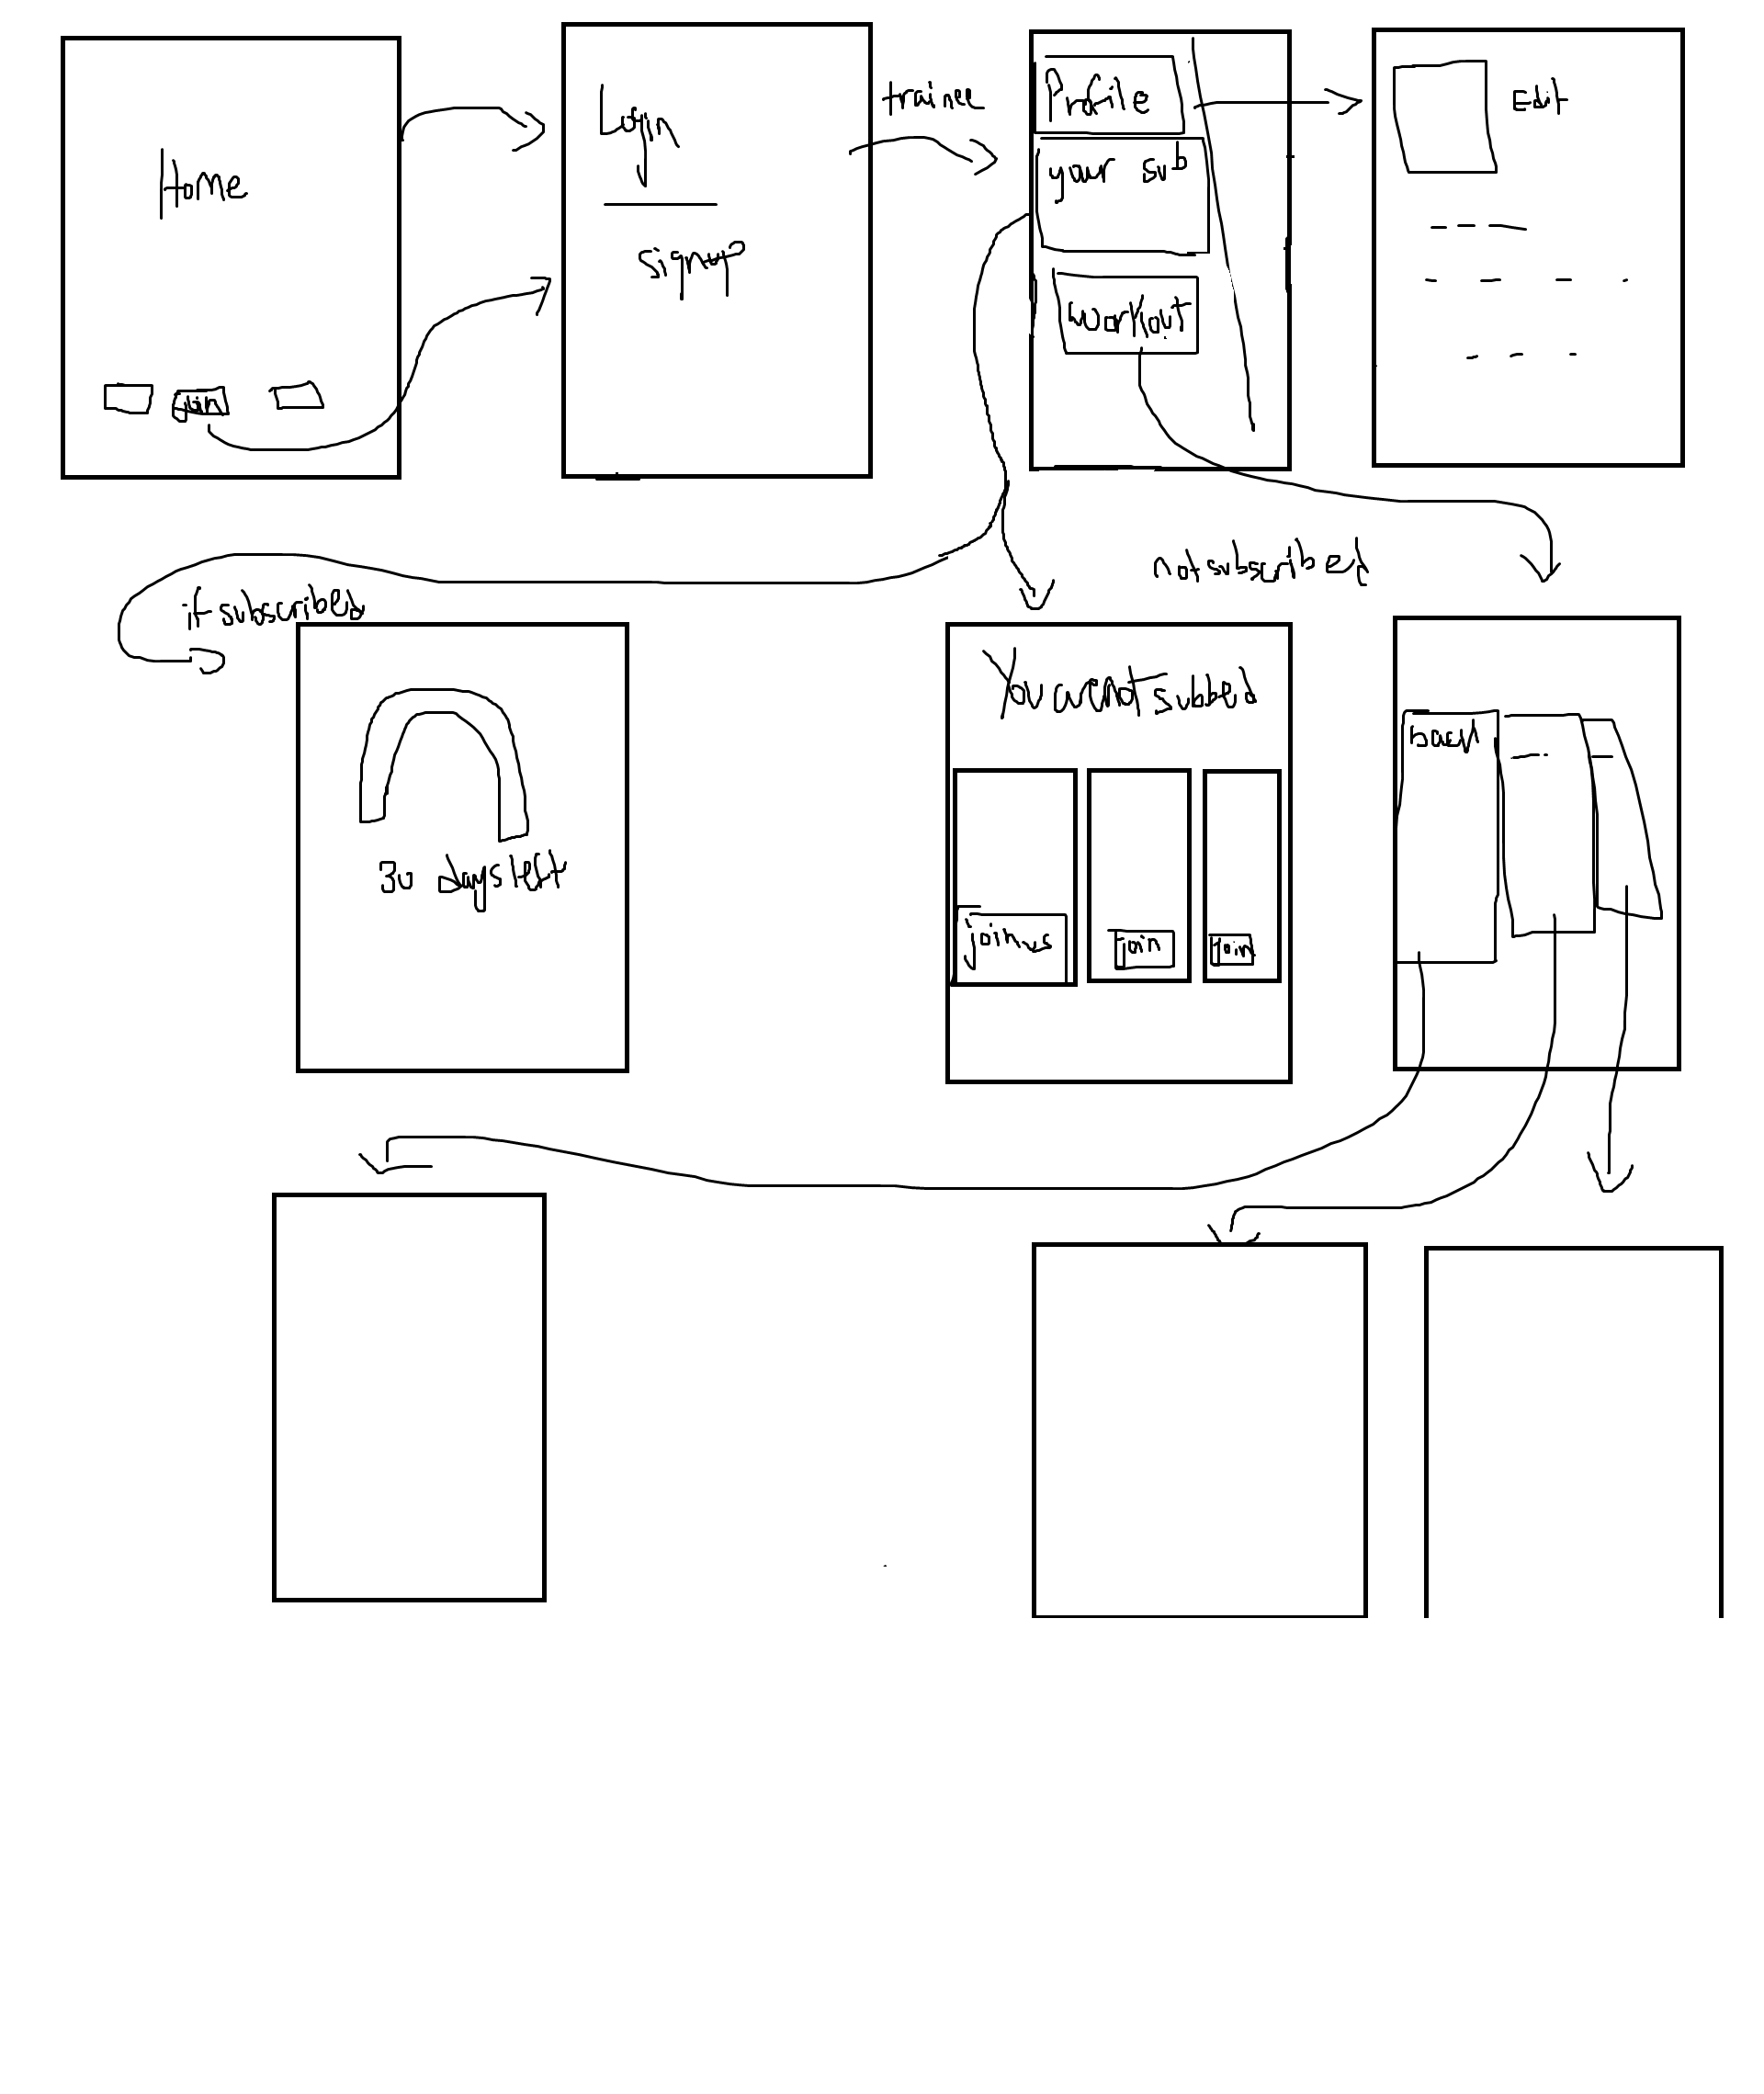 Home
join
Login
signup
trainee
Profile
your sub
workout
Edit
if subscribed
not subscribed
30 days left
You are not subbed
join us
join
join
back